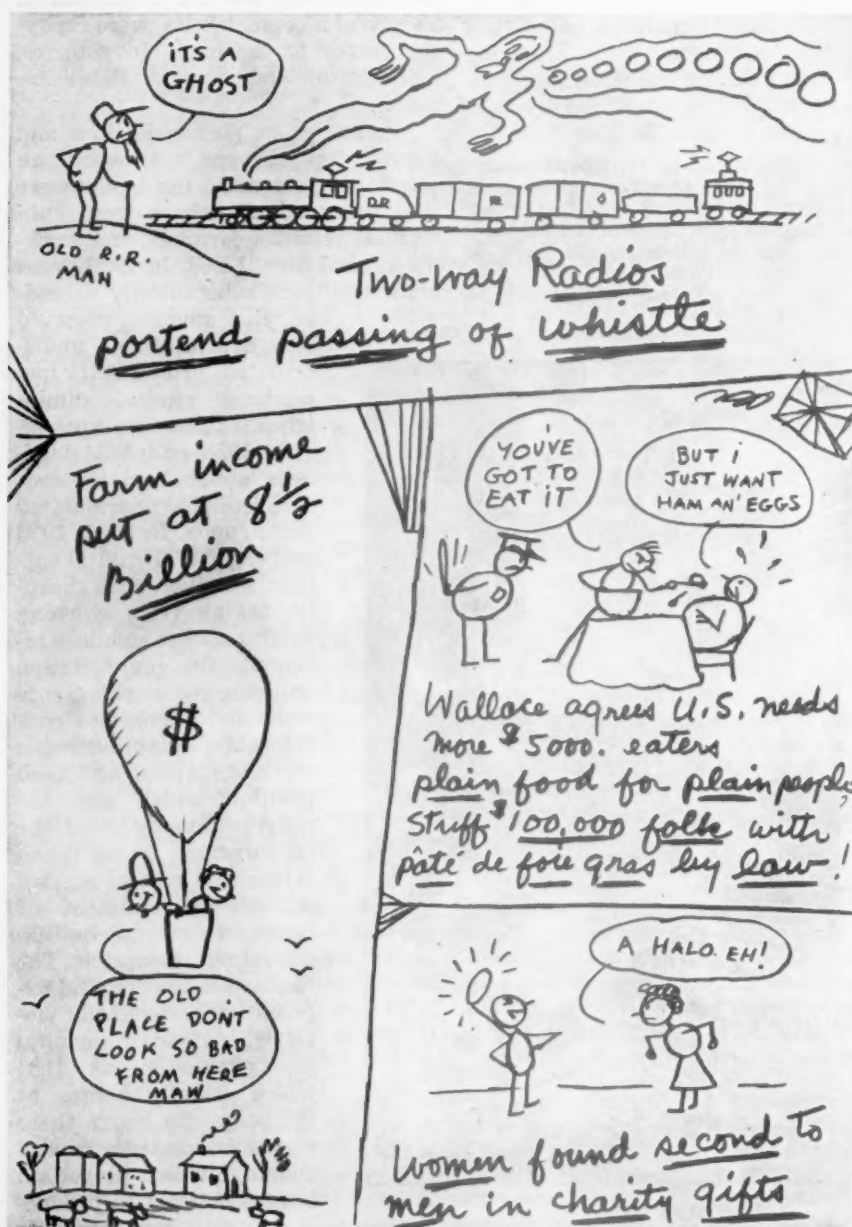 IT'S A
GHOST
OLD R.R.
MAN
D.R
R
Two-way Radios
portend passing of whistle
Farm income
put at 8 1/2
Billion
$
THE OLD
PLACE DON'T
LOOK SO BAD
FROM HERE
MAW
YOU'VE
GOT TO
EAT IT
BUT I
JUST WANT
HAM AN' EGGS
Wallace agrees U.S. needs
more $5000. eaters
plain food for plain people,
Stuff $100,000 folk with
pâté de foie gras by law!
A HALO. EH!
Women found second to
men in charity gifts